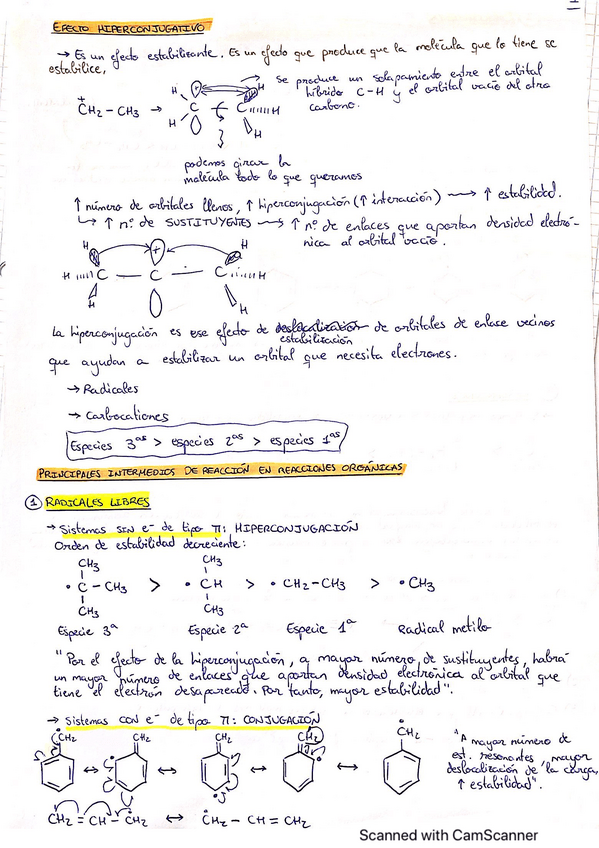 EFECTO HIPERCONJUGATIVO
→ Es un efecto estabilizante. Es un efecto que produce que la molécula que lo tiene se
estabilice,
se produce un solapamiento entre el orbital
híbrido C-H y el orbital vacío del otro
carbono.
+
CH₂ - CH₃ →
H
H
C
+
C
H
H
H
podemos girar la
molécula todo lo que queramos
↑ número de orbitales llenos, ↑ hiperconjugación (↑ interacción) → ↑ estabilidad.
↳ ↑ nº de SUSTITUYENTES → ↑ nº de enlaces que aportan densidad electró-
nica al orbital vacío.
H + H
H C — C — C H
H H
La hiperconjugación es ese efecto de deslocalización de orbitales de enlace vecinos
estabilización
que ayudan a estabilizar un orbital que necesita electrones.
→ Radicales
→ Carbocationes
Especies 3ᵃˢ > especies 2ᵃˢ > especies 1ᵃˢ
PRINCIPALES INTERMEDIOS DE REACCIÓN EN REACCIONES ORGÁNICAS
① RADICALES LIBRES
→ Sistemas SIN e⁻ de tipo π: HIPERCONJUGACIÓN
Orden de estabilidad decreciente:
CH₃ CH₃
• C - CH₃ > • CH > • CH₂-CH₃ > • CH₃
CH₃ CH₃
Especie 3ª Especie 2ª Especie 1ª Radical metilo
"Por el efecto de la hiperconjugación, a mayor número de sustituyentes, habrá
un mayor número de enlaces que aportan densidad electrónica al orbital que
tiene el electrón desapareado. Por tanto, mayor estabilidad".
→ Sistemas CON e⁻ de tipo π: CONJUGACIÓN
•CH₂ CH₂ CH₂ CH₂ •CH₂
↔ ↔ ↔ ↔
"A mayor número de
est. resonantes, mayor
deslocalización de la carga,
↑ estabilidad".
CH₂ = CH - •CH₂ ↔ •CH₂ - CH = CH₂
Scanned with CamScanner